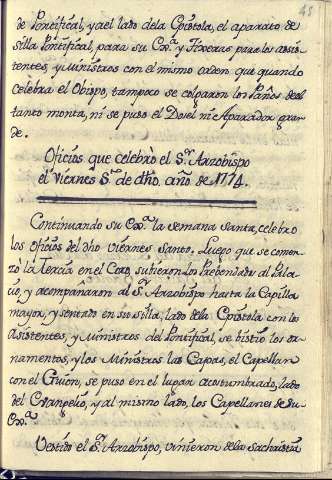 45
de Pontifical, y a el lado de la Epistola, el aparato de
Silla Pontifical, para su Exª. y Fixexas para los asis-
tentes, y Ministros con el mismo orden que quando
celebra el Obispo, tampoco se colgaron los Paños de el
tanto monta, ni se puso el Dosel ni Aparador gran-
de.
Oficios que celebrò el Sr. Arzobispo
el viernes Sto. de dho, año de 1774.
Continuando su Exª. la semana santa, celebro
los oficios del dho viernes santo. Luego que se comen-
zò la Tercia en el Coro, subieron los Prebendados al Pala-
cio, y acompañaron al Sr. Arzobispo hasta la Capilla
mayor, y sentado en su silla, lado de la Epistola con los
Asistentes, y Ministros del Pontifical, se bistio los or-
namentos, y los Ministros las Capas, el Capellan
con el Guion, se puso en el lugar acostumbrado, lado
del Evangelio, y al mismo lado, los Capellanes de su
Exª.
Vestido el Sr. Arzobispo, vinieron de la Sachristia